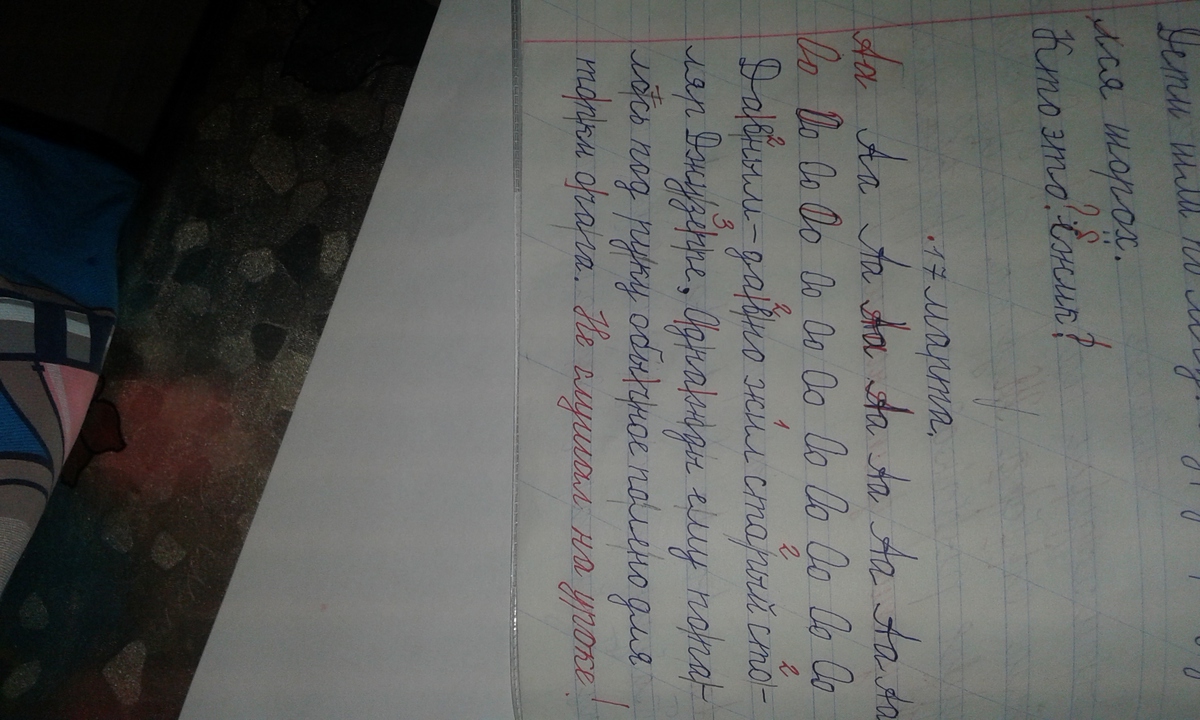 Дети шли по
лся шорох.
Кто это? ёжик?
17 марта.
Аа Аа Аа Аа Аа Аа Аа Аа Аа Аа
Оо Оо Оо Оо Оо Оо Оо Оо Оо Оо Оо Оо Оо
Давным-давно жил старый сто-
ляр Джузеппе. Однажды ему попа-
лось под руку обычное полено для
топки очага. Не слушал на уроке!